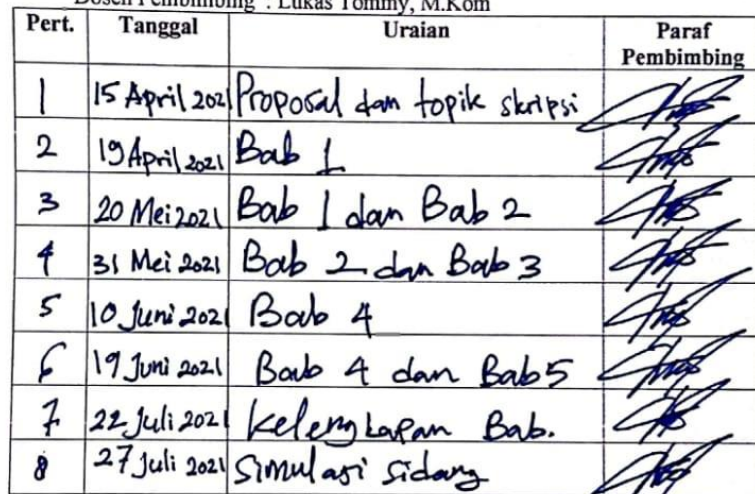 Dosen Pembimbing : Lukas Tommy, M.Kom
Pert. Tanggal Uraian Paraf Pembimbing
1 15 April 2021 Proposal dan topik skripsi
2 19 April 2021 Bab 1
3 20 Mei 2021 Bab 1 dan Bab 2
4 31 Mei 2021 Bab 2 dan Bab 3
5 10 Juni 2021 Bab 4
6 19 Juni 2021 Bab 4 dan Bab 5
7 22 Juli 2021 Kelengkapan Bab.
8 27 Juli 2021 Simulasi sidang